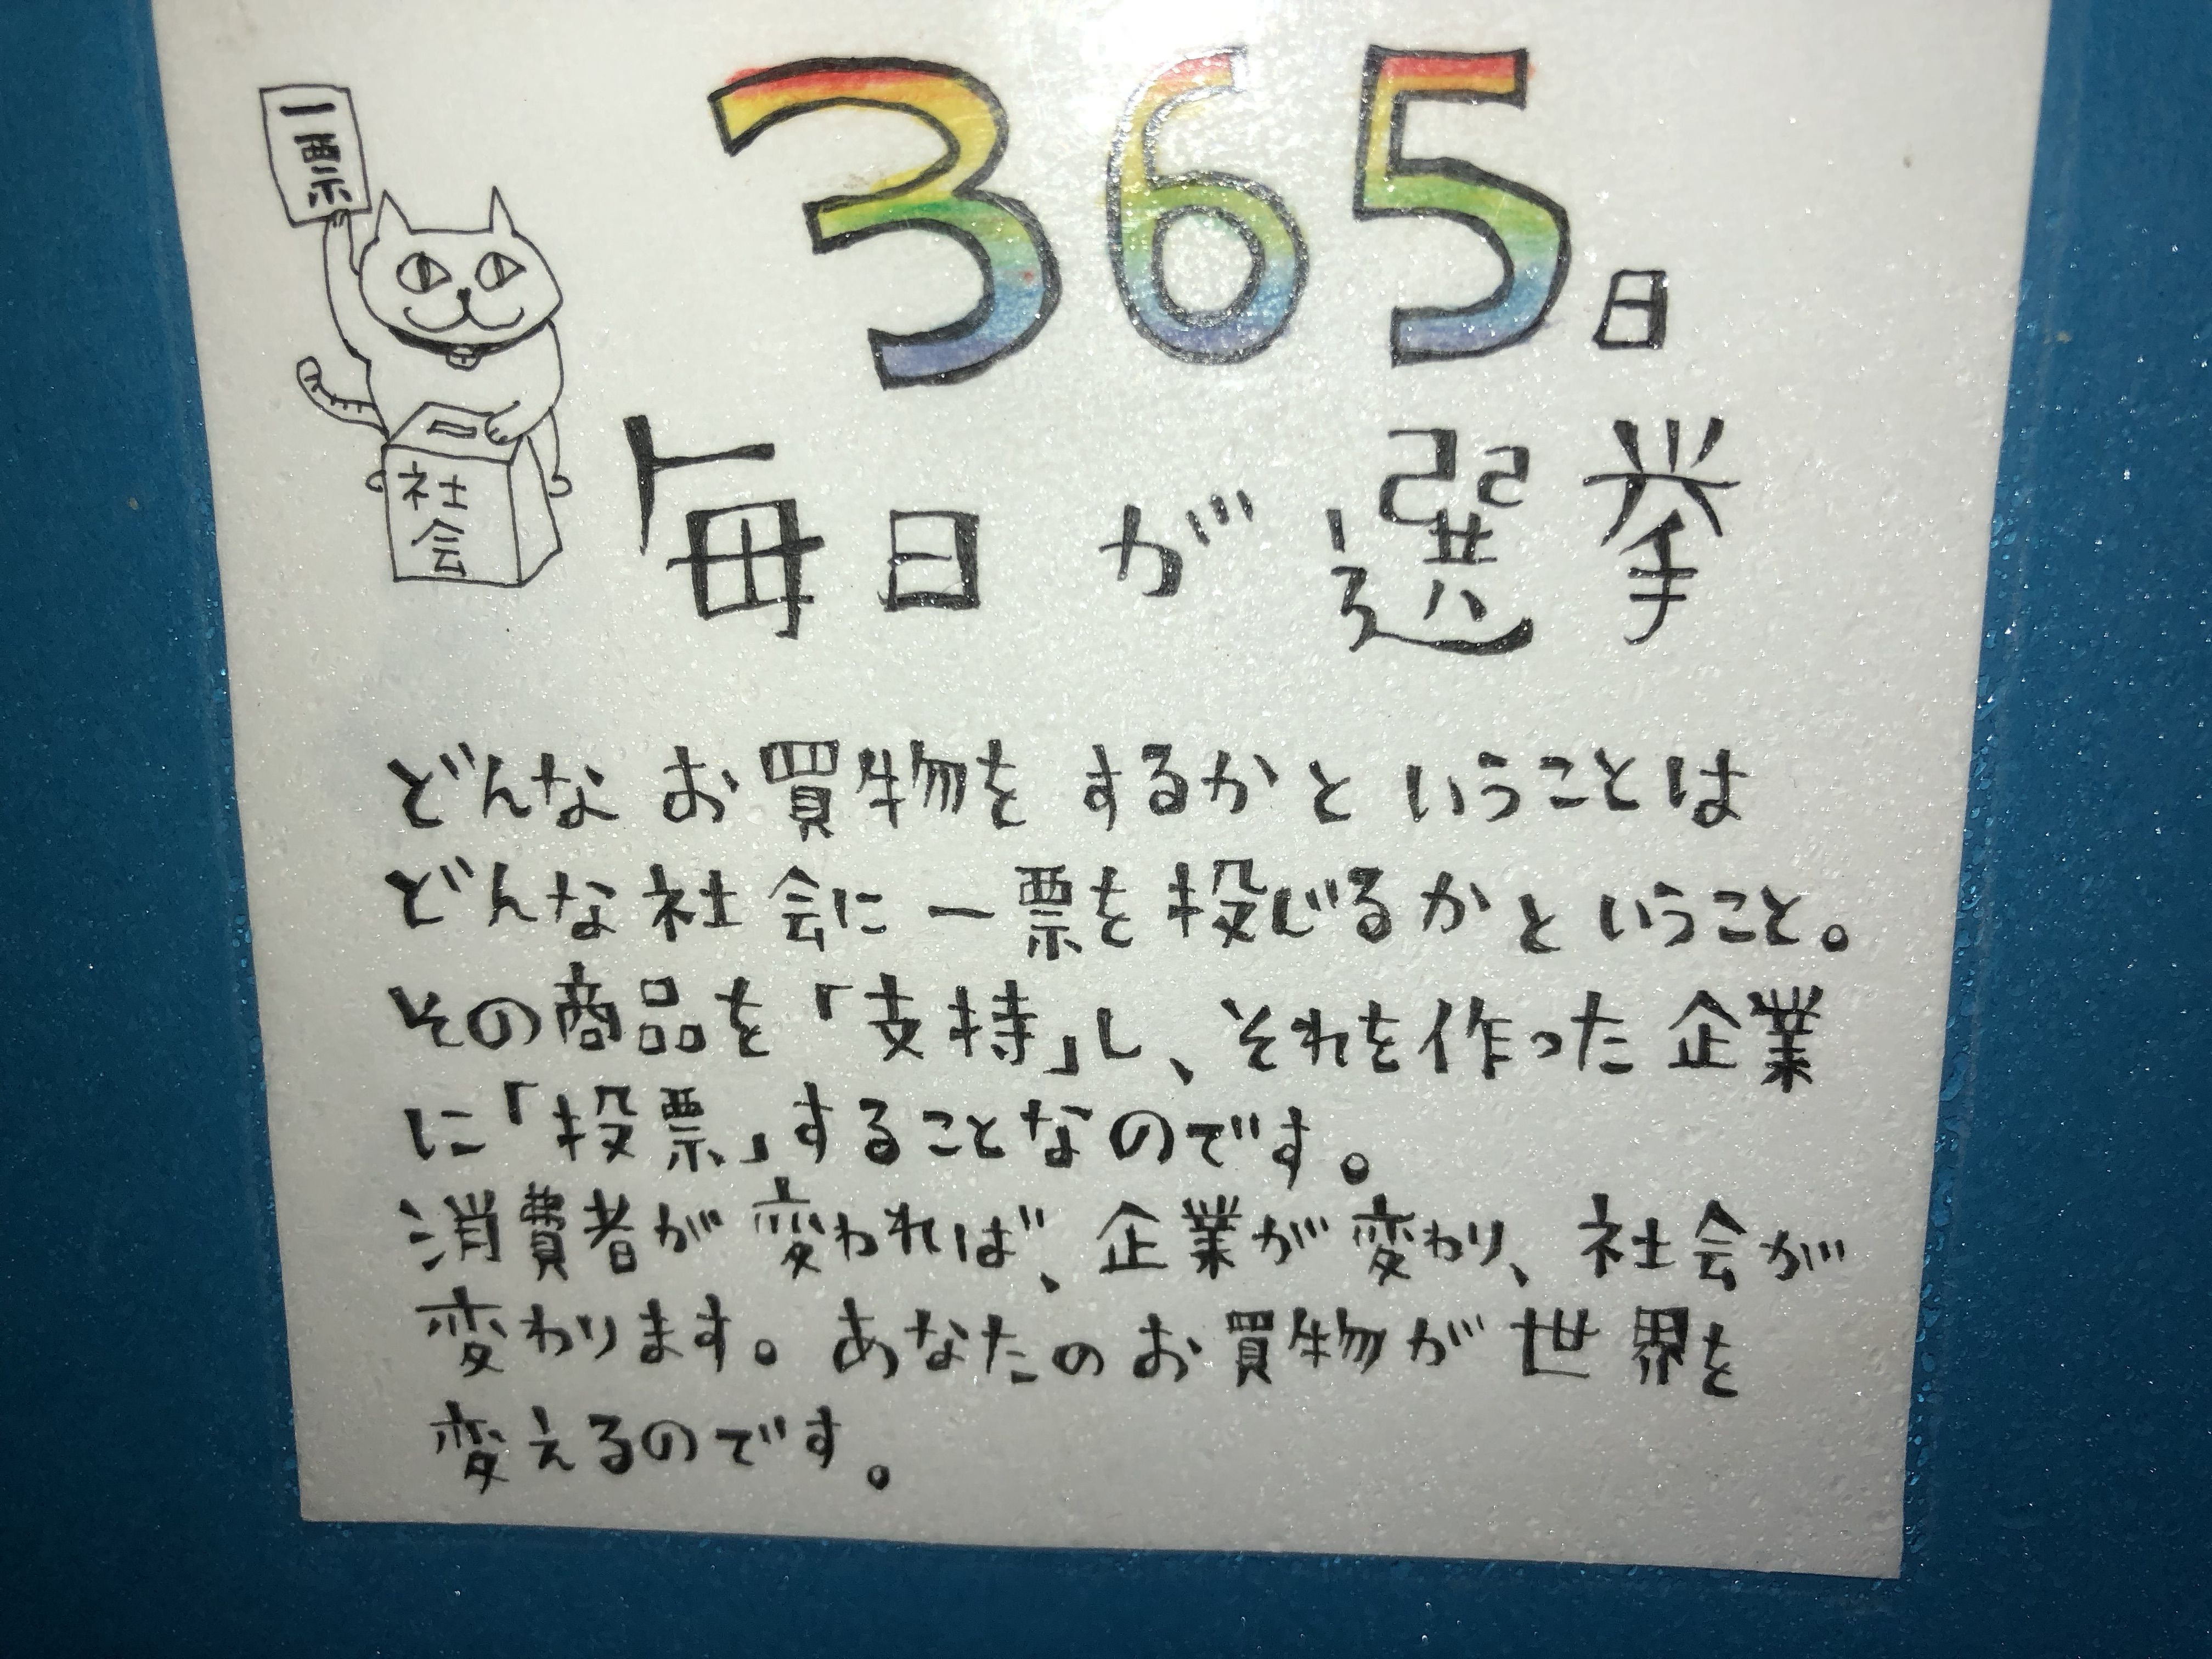 一票
社会
365日
毎日が選挙
どんなお買物をするかということは
どんな社会に一票を投じるかということ。
その商品を「支持」し、それを作った企業
に「投票」することなのです。
消費者が変われば、企業が変わり、社会が
変わります。あなたのお買物が世界を
変えるのです。